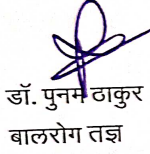 डॉ. पुनम ठाकुर
बालरोग तज्ञ